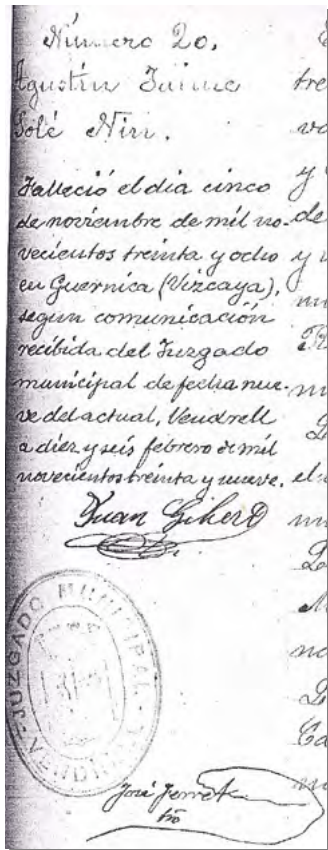 Número 20.
Agustín Jaime
Solé Nin.
Falleció el día cinco
de noviembre de mil no-
vecientos treinta y ocho
en Guernica (Vizcaya),
segun comunicación
recibida del Juzgado
municipal de fecha nue-
ve del actual, Vendrell
a diez y seis febrero de mil
novecientos treinta y nueve.
Juan Gibert
JUZGADO MUNICIPAL
José Ferret